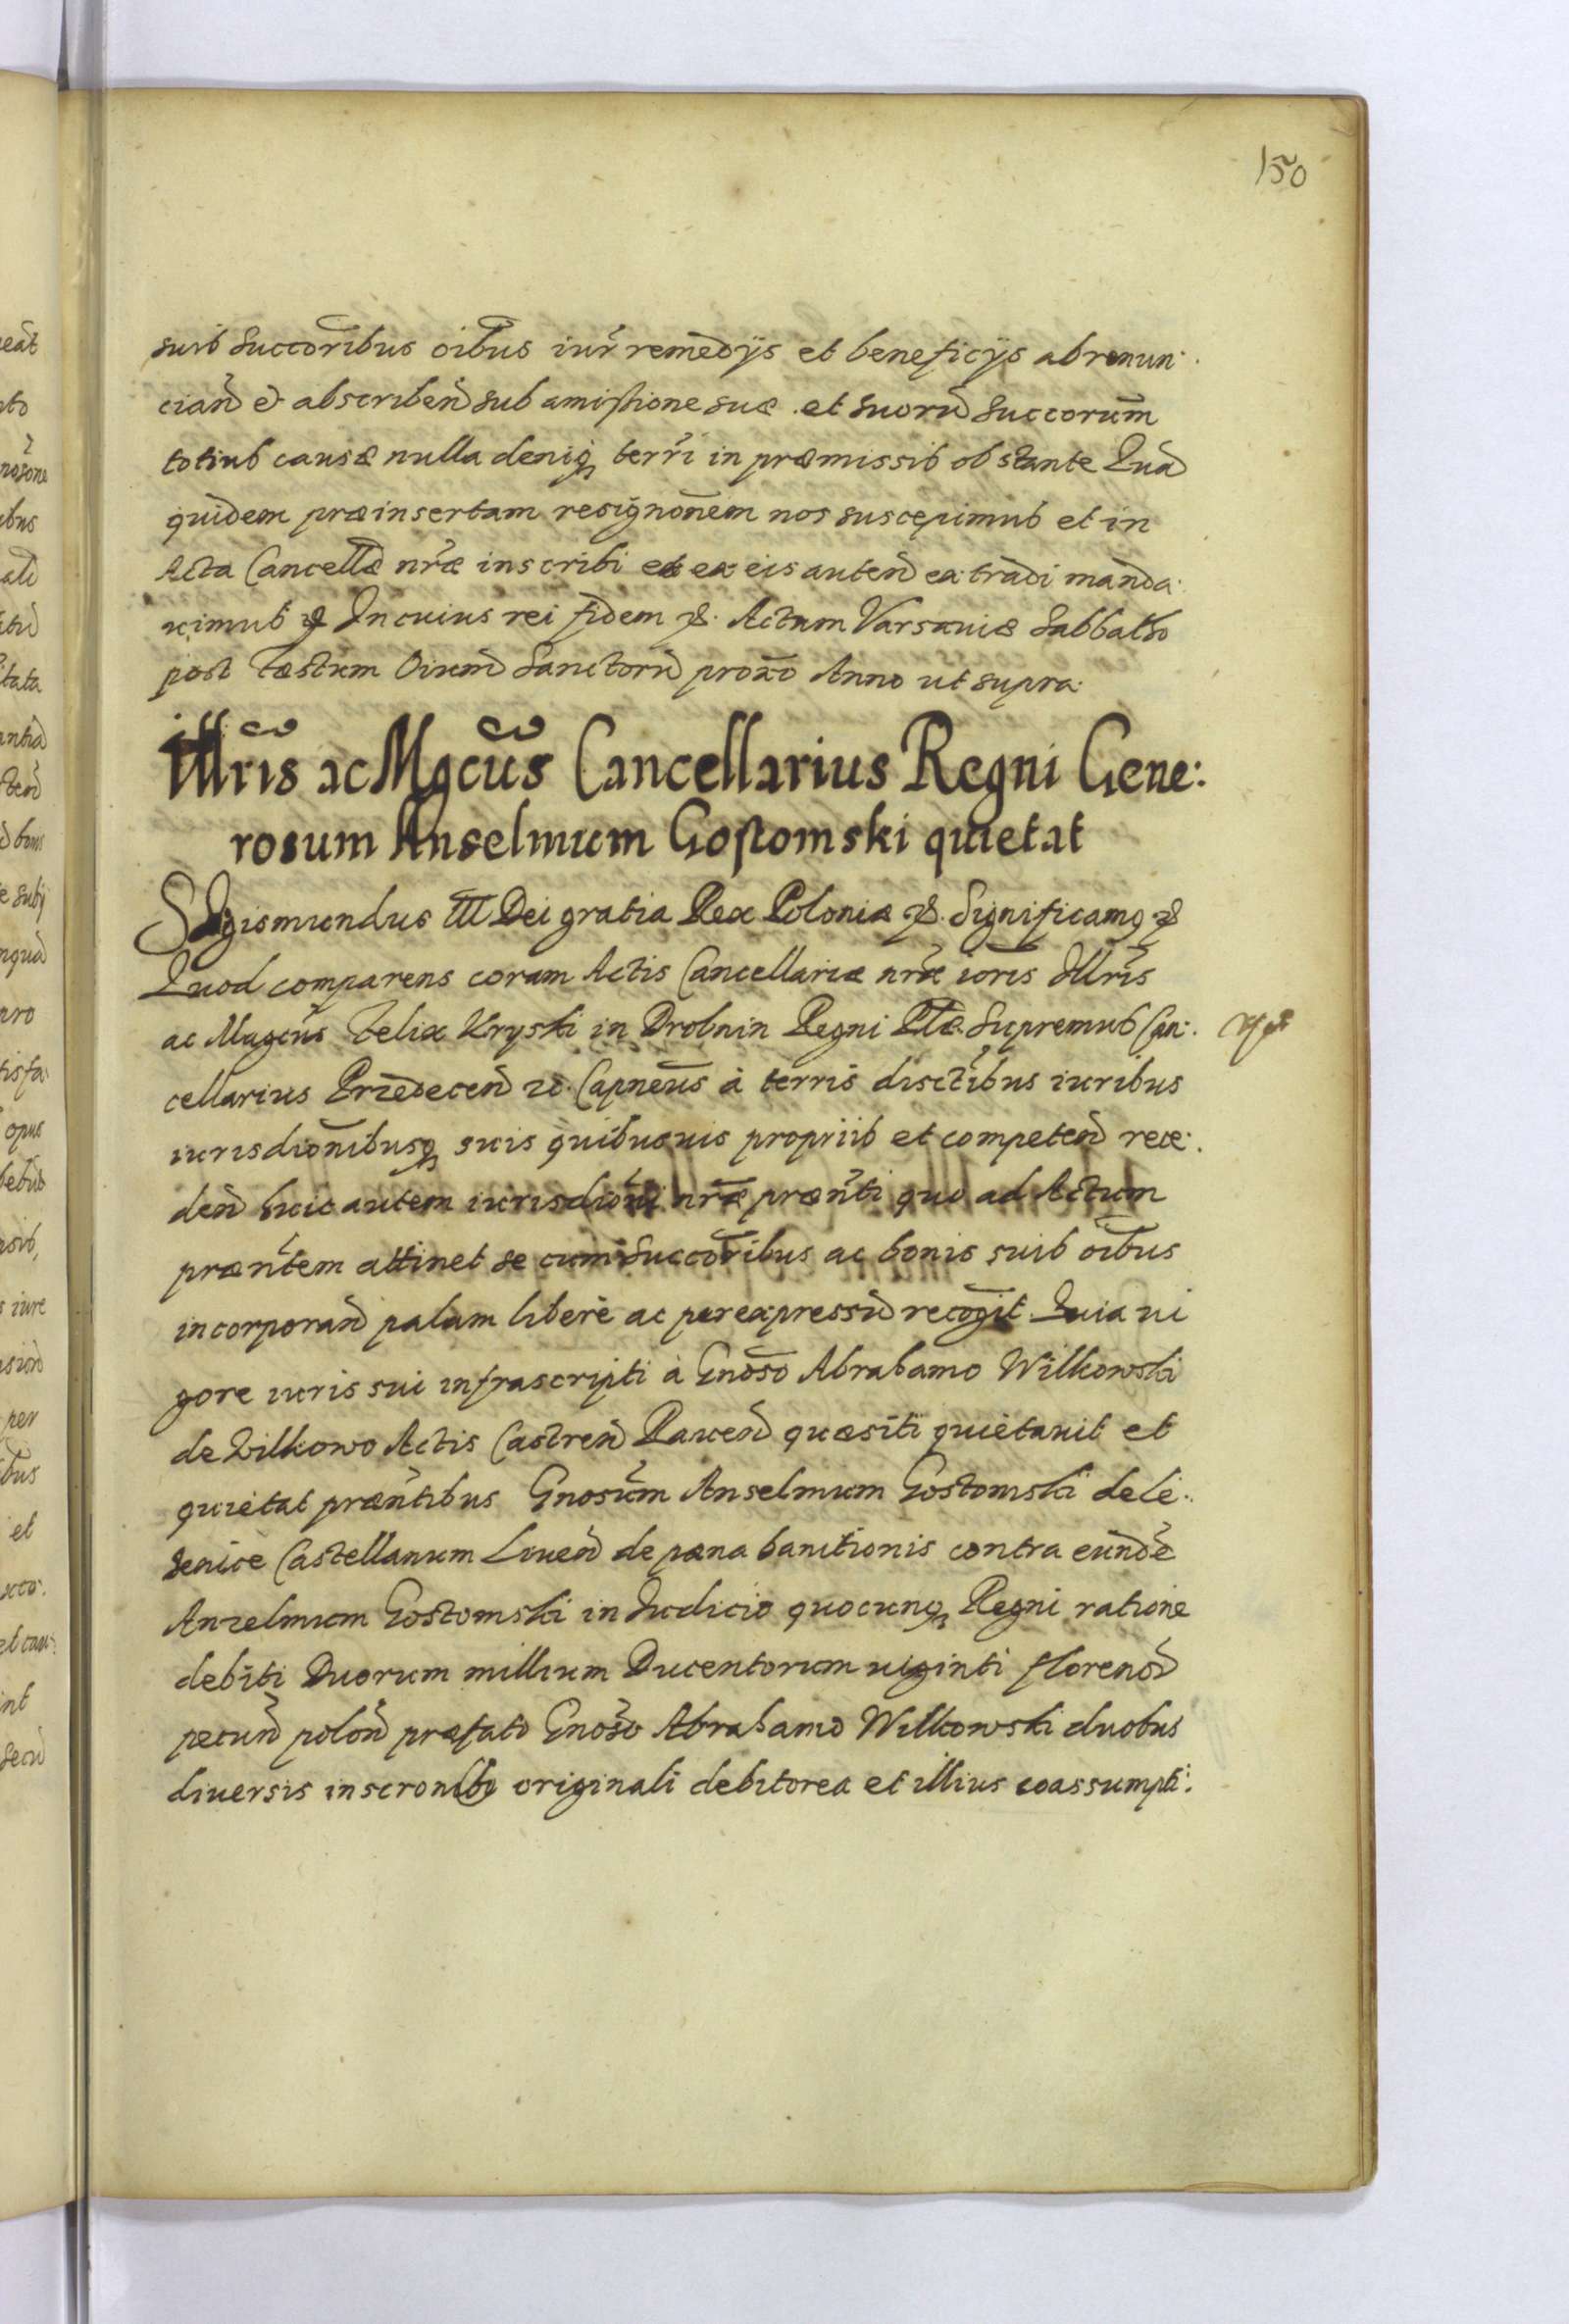 150
suis Succoribus oibus iur remedijs et beneficijs abrenun:
ciand & abscribend sub amissione suæ et suoru Succorum
totius causæ nulla deniq terri in præmissis obstante Qua
quidem præinsertam resignonem nos suscepimus et in
Acta Cancellæ nræ inscribi et ex eis auten extradi manda:
uimus & In cuius rei fidem &. Actum Varsauiæ Sabbatho
post Festum Oium Sanctoru proxo Anno ut supra.
Illris ac Mgcus Cancellarius Regni Gene:
rosum Anselmum Gostomski quietat
Sigismundus III Dei gratia Rex Poloniæ &. Significamq &
Quod comparens coram Actis Cancellariæ nræ ioris Illris
ac Magcus Felix Kryski in Drobnin Regni Plæ Supremus Can:
cellarius Przedecen &. Capneus à terris disctibus iuribus
iurisdionibusq suis quibusuis propriis et competen rece:
den huic autem iurisdioni nræ prænti quo ad Actum
præntem attinet se cum Succoribus ac bonis suis oibus
incorporan palam liberè ac per expressu recogit. Quia ui
gore iuris sui infrascripti à Gnoso Abrahamo Wilkowski
de Wilkowo Actis Castren Rauen quæsiti quietauit et
quietat præntibus Gnosum Anselmum Gostomski de Le:
zenice Castellanum Liuen de pæna banitionis contra eunde
Anzelmum Gostomski in Iudicio quocunq Regni ratione
debiti Duorum millium Ducentorum uiginti floreno
pecun polon præfato Gnoso Abrahamo Wilkowski duobus
diuersis inscronibq originali debitorea et illius coassumpti: